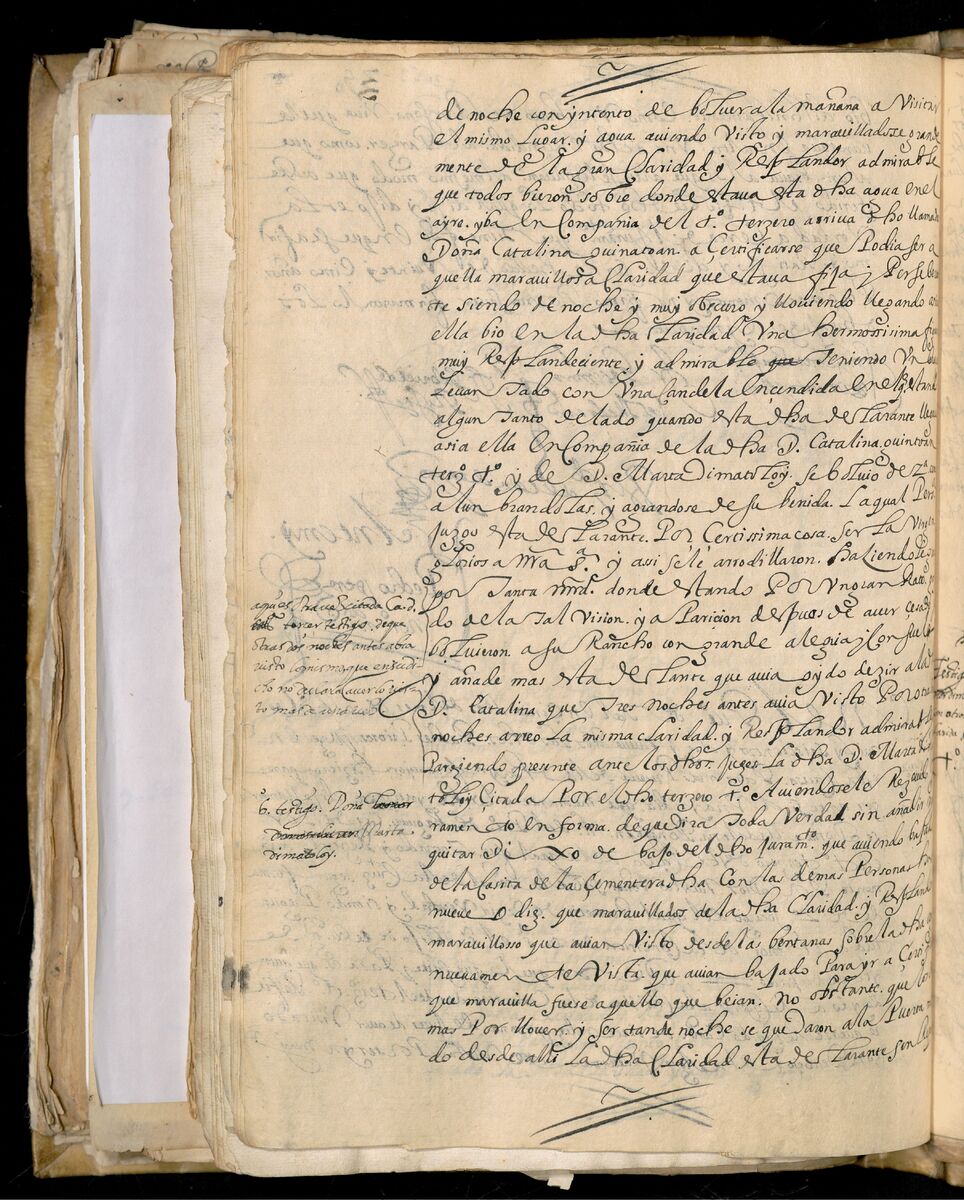 de noche con yntento de bolver a la mañana a Visitar
el mismo Lugar. y agua. auiendo Visto y marauilladose grande
mente de la gran Claridad. y Resplandor admirable
que todos bieron sobre donde estaua esta dha agua en el
ayre. yba En Compañia del t.º terzero arriua dho llamada
Doña Catalina quinatoan. a Certificarse que Podia ser a
quella marauillosa Claridad que estaua fija y Perseberan
te siendo de noche y muy obscuro y llouiendo llegando
ella bio en la dha Claridad Vna hermosissima
muy Resplandeciente. y admirable que Teniendo Vn
Leuantado con Vna Candela Encendida en el estando
algun tanto de lado quando esta dha declarante llego
asia ella En Compañia de la dha D. Catalina. quintoan
ter.º t.º y de D. Marta Dimatoloy. se boluio de
alunbrandolas. y agradose de su benida. La qual
juzgo esta declarante. Por Certissima cosa. Ser La Virgen
gloriosa nra s.ª y assi se le arrodillaron. haziendole
por Tanta mrd. donde estando Por Vn gran Rato
do de la Tal Vision. y aParicion despues de auer
boluieron a su Rancho con grande alegria y Consuelo
y añade mas esta declarante que auia oydo dezir a la
D. Catalina que Tres noches antes auia Visto Por otras
noches arreo La misma claridad. y Resplandor admirable
Pareziendo presente ante los dhos. juezes La dha D. Marta
toloy Çitada Por el dho terzero t.º Auiendosele Rezeuido
ramento en forma. de que dira Toda Verdad. sin añadir
quitar Dixo debajo del dho juram.to que auiendo bajado
de la Casita de la Çementera dha Con las demas Personas
nueue o diz. que marauillados de la dha Claridad. y Resplandor
marauillosso que auian Visto desde las bentanas sobre la dha
nueuamente Vista. que auian bajado Para yr a
que marauilla fuese aquello que beian. no obstante. que
mas Por llouer. y ser tande noche se quedaron a la Puerta
do desde alli La dha Claridad esta declarante sin
aqui es
tercer testigo. de que
otras dos noches antes abia
visto lo mismo que en su di
cho no declara auerlo vis
to mas de
6. testigo. Doña
Marta
Dimatoloy.